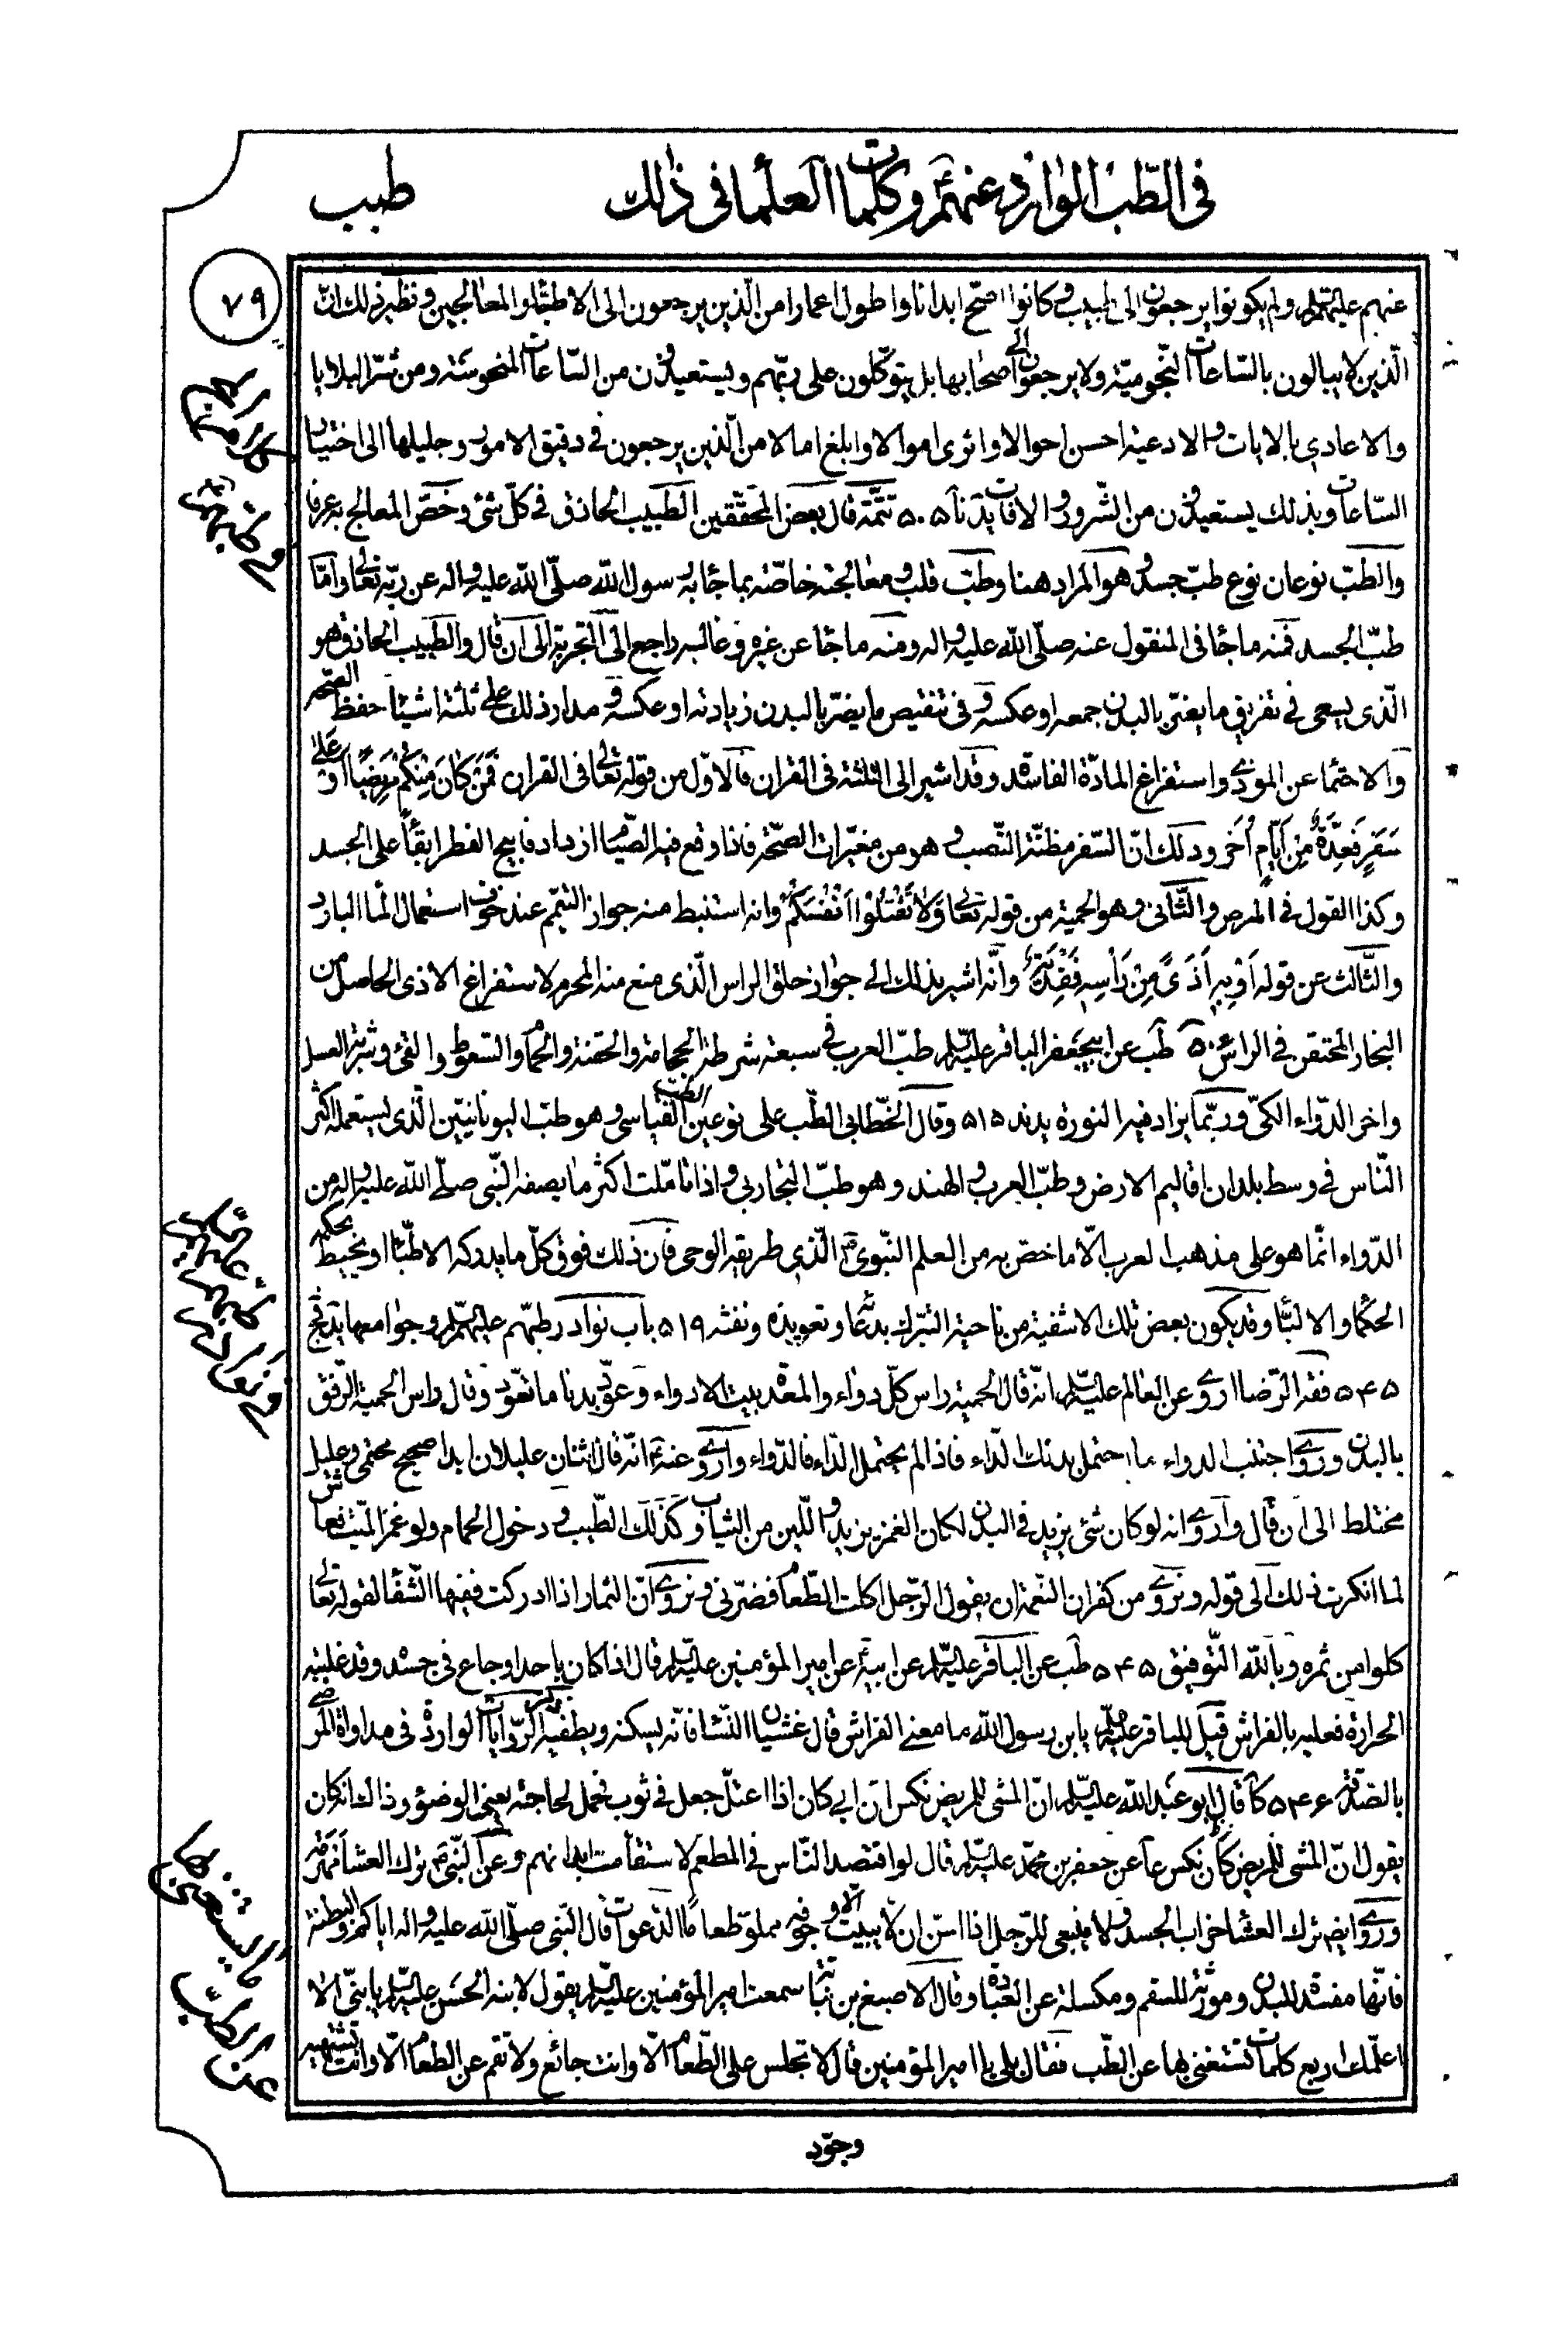 في الطّب الوارد عنهم وكلمات العلما في ذلك
طبب
٧٩
عنهم عليهم السلام ولم يكونوا يرجعون الى طبيب وكانوا اصحّ ابدانا واطول اعمارا من الّذين يرجعون الى الاطبّاء والمعالجين ونظير ذلك انّ
الّذين لا يبالون بالسّاعات النّجوميّة ولا يرجعون الى اصحابها بل يتوكّلون على ربّهم ويستعيذون من السّاعات المنحوسة ومن شرّ البلايا
والاعادي بالايات والادعية احسن احوالا واثرى اموالا وابلغ امالا من الّذين يرجعون في دقيق الامور وجليلها الى اختيار
السّاعات وبذلك يستعيذون من الشّرور والافات يد نا ٥٠٥ تتمّة قال بعض المحقّقين الطّبيب الحاذق في كلّ شئ وخصّ المعالج به عرفا
والطّبّ نوعان نوع طبّ جسد وهو المراد هنا وطبّ قلب ومعالجته خاصّة بما جاء به رسول الله صلّى الله عليه واله عن ربّه تعالى وامّا
طبّ الجسد فمنه ما جاء في المنقول عنه صلّى الله عليه واله ومنه ما جاء عن غيره وغالبه راجع الى التجربة الى ان قال والطّبيب الحاذق هو
الّذى يسعى في تفريق ما يضرّ بالبدن جمعه او عكسه وفي تنقيص ما يضرّ بالبدن زيادته او عكسه ومدار ذلك على ثلثة اشياء حفظ الصّحّة
والاحتماء عن الموذي واستفراغ المادّة الفاسدة وقد اشير الى الثلثة في القران فالاوّل من قوله تعالى في القران فَمَنْ كانَ مِنْكُمْ مَريضًا اَوْ عَلى
سَفَرٍ فَعِدَّةٌ مِنْ اَيّامٍ اُخَر وذلك انّ السّفر مظنّة النّصب وهو من مغيّرات الصّحّة فاذا وقع فيه الصّيام ازداد فابيح الفطر ابقاء على الجسد
وكذا القول في المرض والثّاني وهو الحمية من قوله تعالى وَلا تَقْتُلُوا اَنْفُسَكُمْ وانه استنبط منه جواز التيمّم عند خوف استعمال الماء البارد
والثّالث عن قوله اَوْ بِهِ اَذىً مِنْ رَاْسِهِ فَفِدْيَةٌ وانّه اشير بذلك الى جواز حلق الراس الّذى منع منه المحرم لاستفراغ الاذى الحاصل من
البخار المحتقن في الراس ٥٠٦ طب عن ابيجعفر الباقر عليه السلام طبّ العرب في سبعة شرطة الحجامة والحقنة والحمّام والسّعوط والقئ وشربة العسل
واخر الدّواء الكيّ وربّما يزاد فيه النورة يد ند ٥١٥ وقال الخطّابي الطّب على نوعين الطّبّ القياسي وهو طبّ اليونانيّين الّذى يستعمله اكثر
النّاس في وسط بلدان اقاليم الارض وطبّ العرب والهند وهو طبّ التجارب واذا تامّلت اكثر ما يصفه النّبي صلّى الله عليه واله من
الدّواء انّما هو على مذهب العرب الّا ما خصّ به من العلم النّبوى الّذي طريقه الوحي فان ذلك فوق كلّ ما يدركه الاطبّاء او يحيط بحكمه
الحكماء والالبّاء وقد يكون بعض تلك الاشفية من ناحية التبرّك بدعاء وتعويذه ونفثه ٥١٩ باب نوادر طبّهم عليهم السلام وجوامعها يد فج
٥٤٥ فقه الرّضا اروي عن العالم عليه السلام انه قال الحمية راس كلّ دواء والمعدة بيت الادواء وعوّد بدنا ما تعوّد وقال راس الحمية الرّفق
بالبدن وروي اجتنب الدواء ما احتمل بدنك الدّاء فاذا لم يحتمل الدّاء فالدّواء واروي عنه انّه قال اثنان عليلان ابدا صحيح محتمي وعليل
مختلط الى ان قال واروي انه لو كان شئ يزيد في البدن لكان الغمز يزيد واللّين من الثياب وكذلك الطّيب ودخول الحمام ولو غمز الميّت فعاش
لما انكرت ذلك الى قوله ونروي من كفران النّعمة ان يقول الرّجل اكلت الطّعام فضرّني ونروي انّ الثمار اذا ادركت ففيها الشّفاء لقوله تعالى
كلوا من ثمره وبالله التّوفيق ٥٤٥ طب عن الباقر عليه السلام عن ابيه عن امير المؤمنين عليه السلام قال اذا كان باحد اوجاع في جسده وقد غلبته
الحرارة فعليه بالفراش قيل للباقر عليه السلام يابن رسول الله ما معنى الفراش قال غشيان النّساء فانّه يسكنه ويطفيه ذكر الرّوايات الوارده في مداواة المرضى
بالصّدقة ٥٤٦ كا قال ابو عبد الله عليه السلام انّ المشي للمريض نكس انّ ابي كان اذا اعتلّ جعل في ثوب فحمل لحاجته يعني الوضوء وذاك انه كان
يقول انّ المشي للمريض نكس عا عن جعفر بن محمّد عليه السلام قال لو اقتصد النّاس في المطعم لاستقامت ابدانهم وعن النّبي ترك العشاء مهرمة
وروي ايضا ترك العشاء خراب الجسد ولا ينبغي للرّجل اذا اسنّ ان لا يبيت الّا وجوفه مملوّ طعاما الدّعوات قال النبي صلّى الله عليه واله اياكم والبطنة
فانّها مفسدة للبدن ومورثة للسقم ومكسلة عن العبادة وقال الاصبغ بن نباتة سمعت امير المؤمنين عليه السلام يقول لابنه الحسن عليه السلام يا بنيّ الا
اعلّمك اربع كلمات تستغني بها عن الطّب فقال بلى يا امير المؤمنين قال لا تجلس على الطّعام الّا وانت جائع ولا تقم عن الطعام الّا وانت تشتهيه
ما يستغنى بها
عن الطبّ
وجوّد